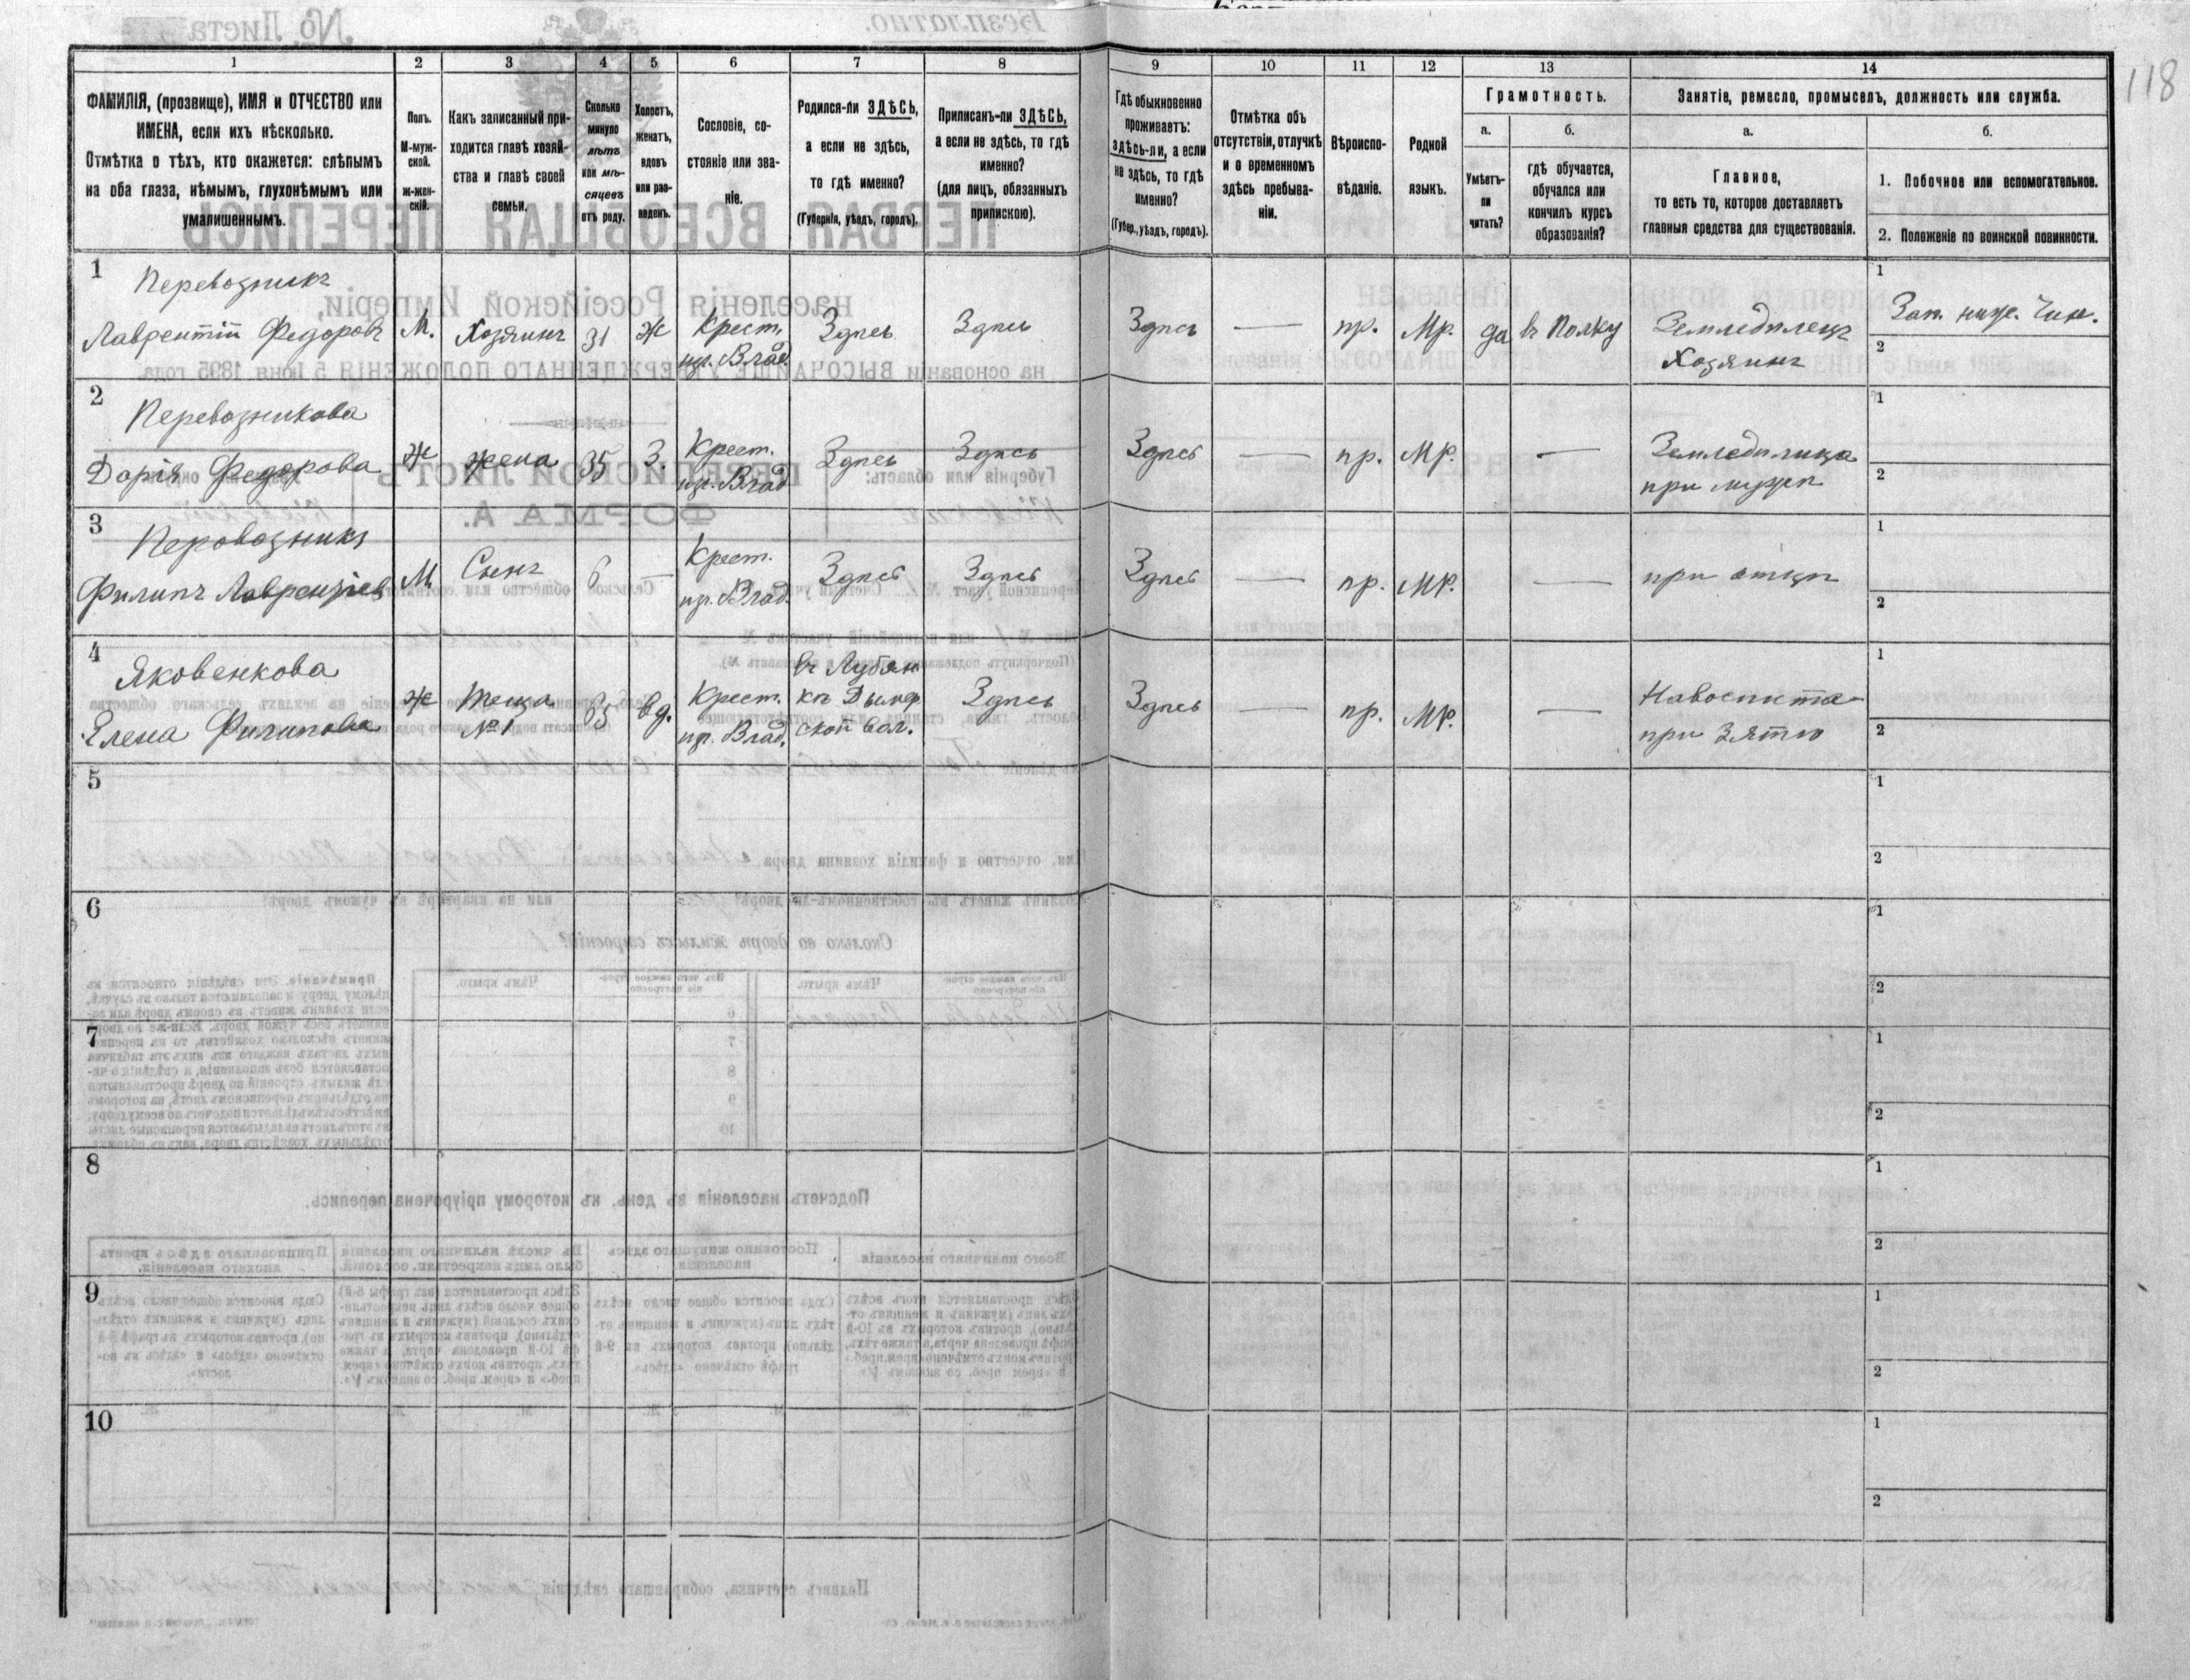 118
1
2
3
4
5
6
7
8
9
10
11
12
13
14
ФАМИЛІЯ, (прозвище), ИМЯ и ОТЧЕСТВО или
ИМЕНА, если ихъ нѣсколько.
Отмѣтка о тѣхъ, кто окажется: слѣпымъ
на оба глаза, нѣмымъ, глухонѣмымъ или
умалишеннымъ.
Полъ.
М-муж-
ской.
Ж-жен-
скій.
Какъ записанный при-
ходится главѣ хозяй-
ства и главѣ своей
семьи.
Сколько
минуло
лѣтъ
или мѣ-
сяцевъ
отъ роду.
Холостъ,
женатъ,
вдовъ
или раз-
веденъ.
Сословіе, со-
стояніе или зва-
ніе.
Родился-ли ЗДѢСЬ,
а если не здѣсь,
то гдѣ именно?
(Губернія, уѣздъ, городъ).
Приписанъ-ли ЗДѢСЬ,
а если не здѣсь, то гдѣ
именно?
(для лицъ, обязанныхъ
припискою).
Гдѣ обыкновенно
проживаетъ:
здѣсь-ли, а если
не здѣсь, то гдѣ
именно?
(Губер., уѣздъ, городъ).
Отмѣтка объ
отсутствіи, отлучкѣ
и о временномъ
здѣсь пребыва-
ніи.
Вѣроиспо-
вѣданіе.
Родной
языкъ.
Грамотность.
а.
б.
Умѣетъ-
ли
читать?
гдѣ обучается,
обучался или
кончилъ курсъ
образованія?
Занятіе, ремесло, промыселъ, должность или служба.
а.
б.
Главное,
то есть то, которое доставляетъ
главныя средства для существованія.
1. Побочное или вспомогательное.
2. Положеніе по воинской повинности.
1
Перевозникъ
Лаврентій Федоровъ
М.
Хозяинъ
31
Ж
Крест.
из. Влад.
Здѣсь
Здѣсь
Здѣсь
—
пр.
Мр.
да
въ Полку
Земледѣлецъ
Хозяинъ
1
Зап. ниж. Чин.
2
2
Перевозникова
Дарія Федорова
Ж
жена
35
З.
Крест.
из. Влад
Здѣсь
Здѣсь
Здѣсь
—
пр.
Мр.
—
Земледѣлица
при мужѣ
1
2
3
Перовозникъ
Филипъ Лаврентіев
М
Сынъ
6
—
Крест.
из. Влад.
Здѣсь
Здѣсь
Здѣсь
—
пр.
Мр.
—
при отцѣ
1
2
4
Яковенкова
Елена Филипова
Ж
теща
№ 1
вд.
Крест.
из. Влад.
въ Лубян
кѣ Дымер
ской вол.
Здѣсь
Здѣсь
—
пр.
Мр.
—
при Зятю
1
2
5
1
2
6
1
2
7
1
2
8
1
2
9
1
2
10
1
2